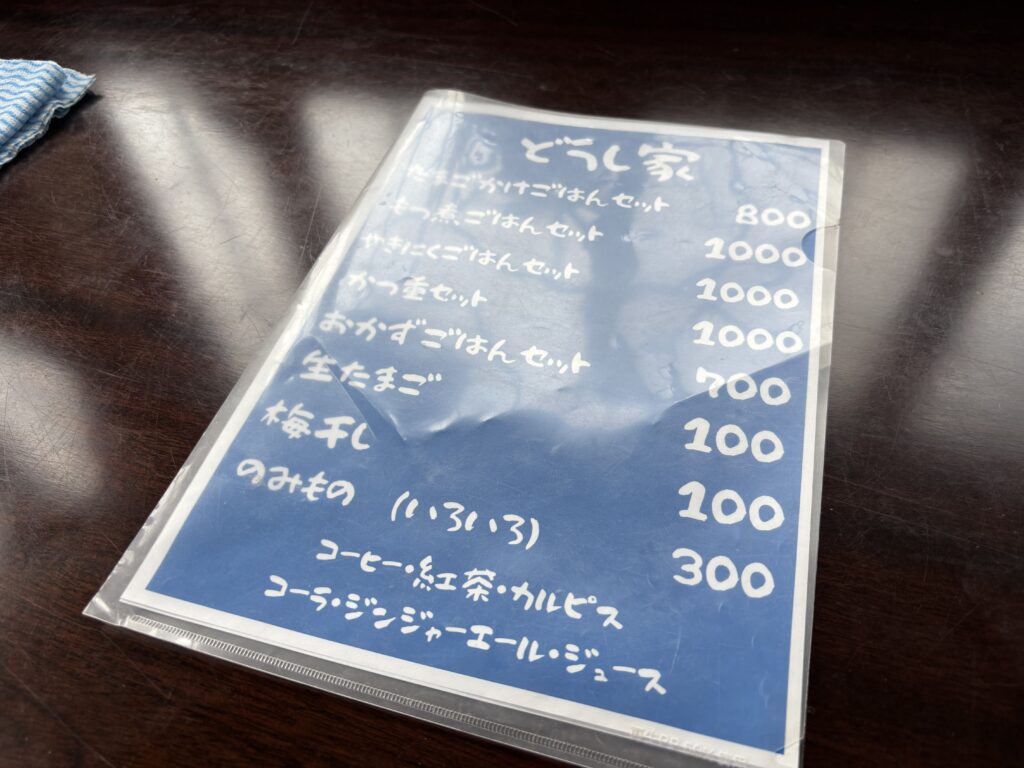 どうし家
たまごかけごはんセット 800
もつ煮ごはんセット 1000
やきにくごはんセット 1000
かつ重セット 1000
おかずごはんセット 700
生たまご 100
梅干し 100
のみもの (いろいろ) 300
コーヒー・紅茶・カルピス
コーラ・ジンジャーエール・ジュース